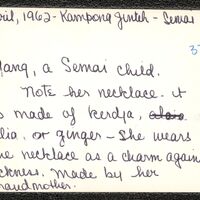 ril, 1962 - Kampong
Semai
ang, a Semai child.
Note her necklace. it
s made of kerdja,
lia, or ginger - She wears
e necklace as a charm again
ckness. Made by her
randmother.